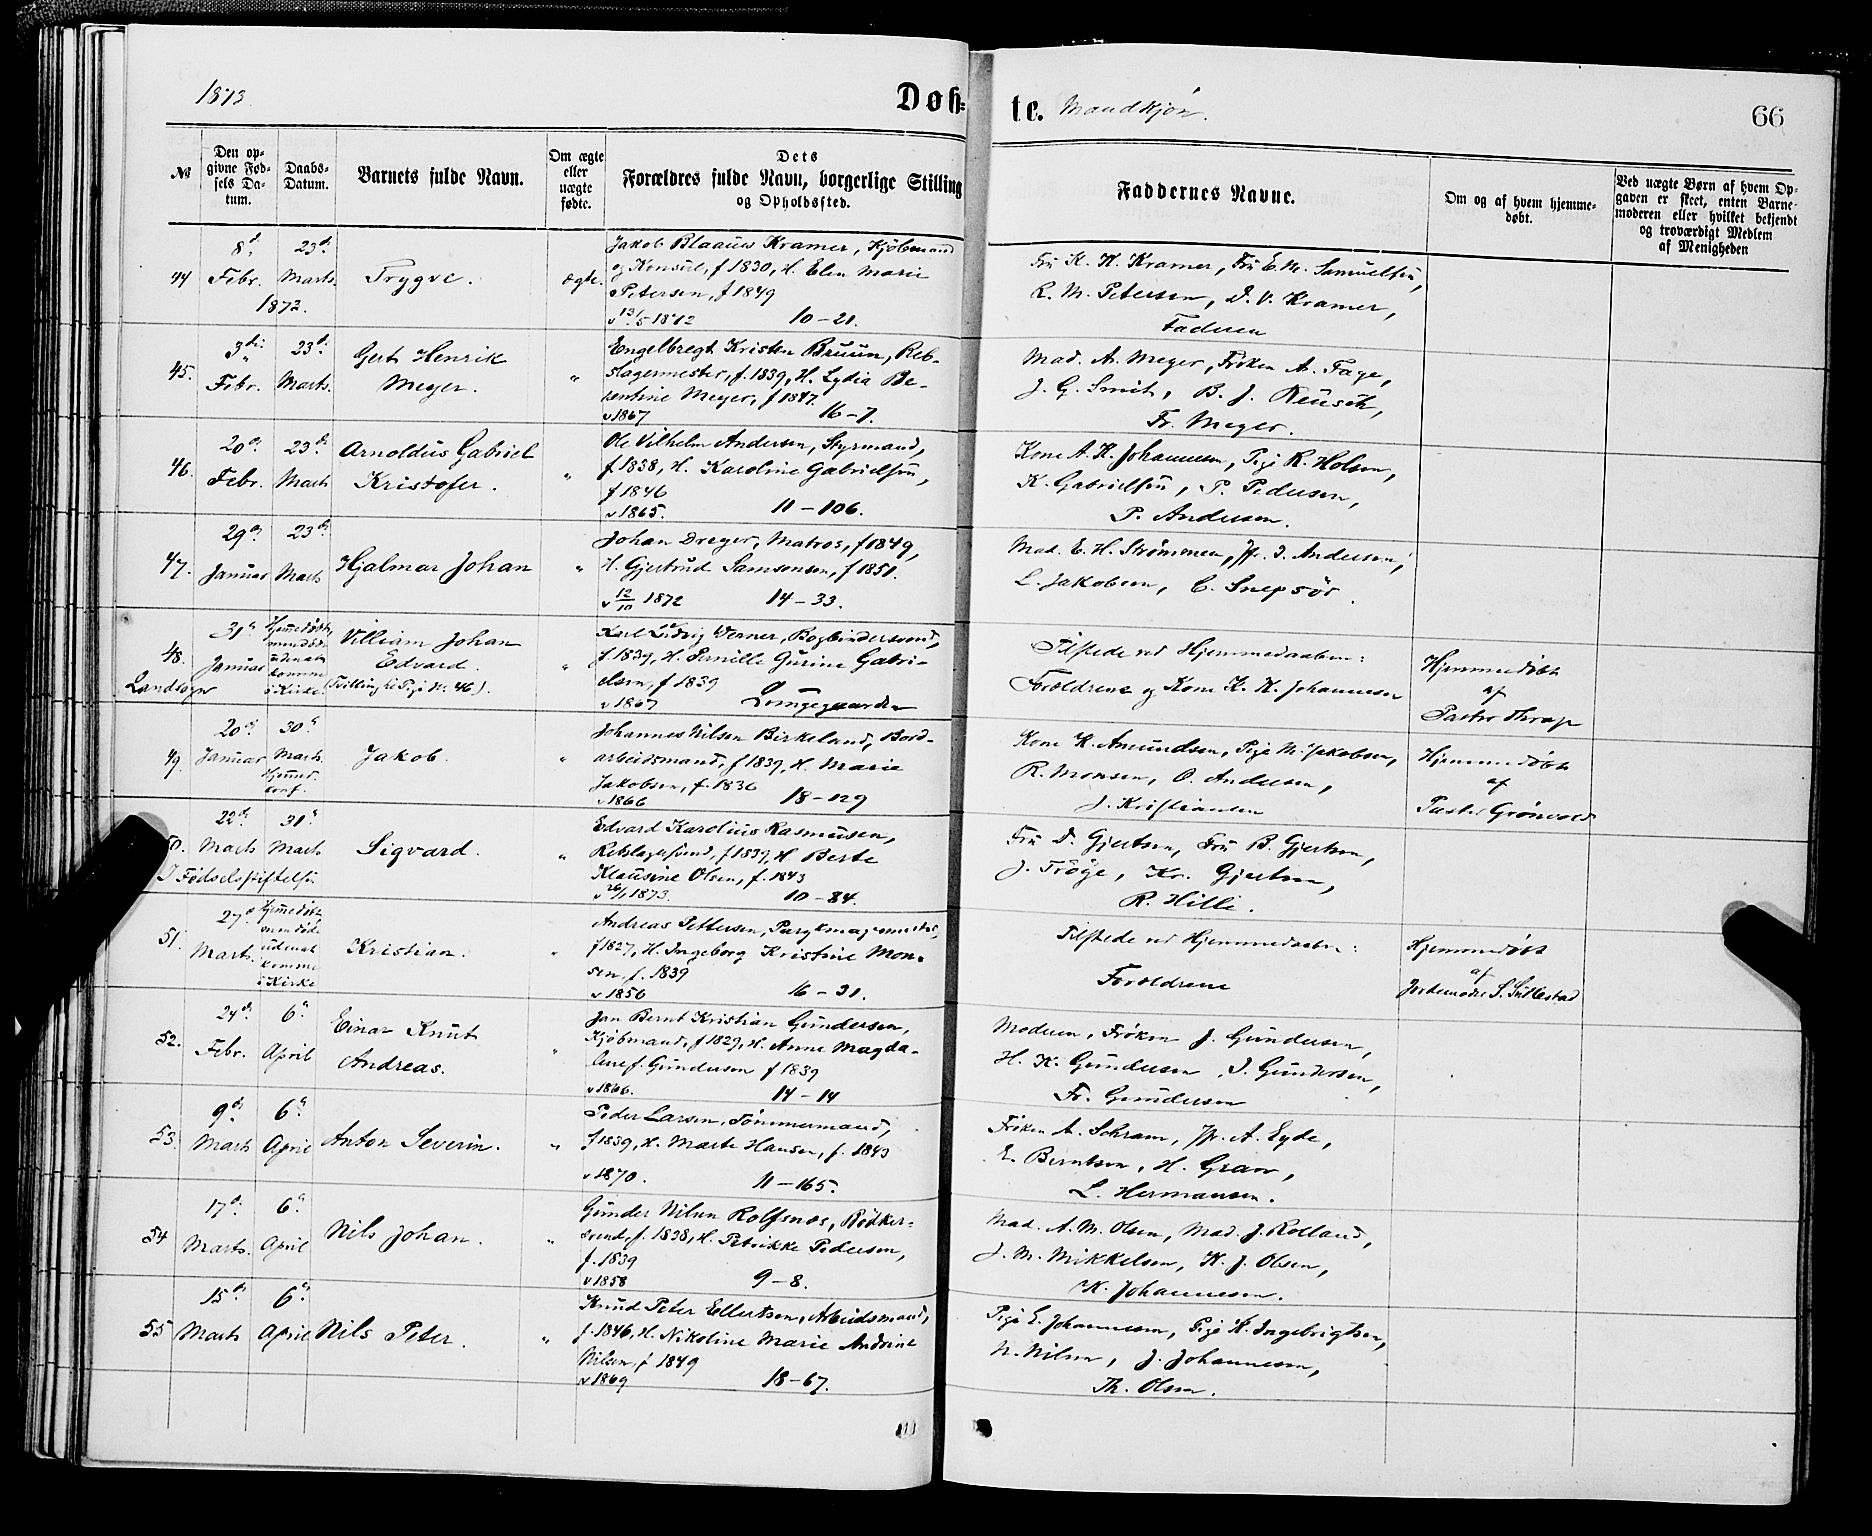 1873.
Døb-
te. Mandkjøn.
66
№
Den opgivne Fødsels Datum.
Daabs-Datum.
Barnets fulde Navn.
Om ægte eller uægte fødte.
Dets
Forældres fulde Navn, borgerlige Stilling
og Opholdssted.
Faddernes Navne.
Om og af hvem hjemmedøbt.
Ved uægte Børn af hvem Opgaven er skeet, enten Barnemoderen eller hvilket bekjendt og troværdigt Medlem af Menigheden
44
8de Febr. 1872.
23de Marts.
Trygve.
ægte.
Jakob Blaauw Kramer, Kjøbmand
og Konsul, f 1830, H. Elen Marie
Petersen, f 1849
v 13/5 1872 10-21.
Fru K. H. Kramer, Fru E. M. Samuelsen,
R. M. Petersen, D. V. Kramer,
Faderen
45.
3die Febr.
23de Marts.
Gert Henrik
Meyer.
"
Engelbregt Kristen Bruun, Reb-
slagermester, f. 1839, H. Lydia Be-
rentine Meyer, f 1847.
v 1867 16-7.
Mad. A. Meyer, Frøken A. Fage,
J. G. Smit, B. J. Reusch,
Fr. Meyer.
46.
20de Febr.
23de Marts
Arnoldus Gabriel
Kristofer.
"
Ole Vilhelm Andersen, Styrmand,
f 1838, H. Karoline Gabrielsen,
f 1846
v 1865. 11-106.
Kone A. K. Johannesen, Pige R. Holsen,
K. Gabrielsen, P. Pedersen,
P. Andersen.
47.
29de Januar
23de Marts
Hjalmar Johan
"
Johan Dreyer, Matros, f 1849,
H. Gjertrud Samsonsen, f 1851.
v 12/10 1872 14-33.
Mad. E. H. Strømmen, Jfr. I. Andersen,
L. Jakobsen, C. Snepsør.
48.
Landsogn
31te Januar
Hjemmedøbt,
men død
uden at
komme
i Kirke
Villiam Johan
Edvard.
(Tvilling til Pige Nr. 46).
"
Karl Ludvig Werner, Bogbindersvend,
f 1839, H. Pernille Gurine Gabri-
elsen, f 1839
v 1867 Lungegaarden
Tilstede ved Hjemmedaaben:
Forældrene og Kone K. K. Johannesen
Hjemmedøbt
af
Pastor Thrap
49.
20de Januar
30te Marts
Hjemmed.
konf.
Jakob.
"
Johannes Nilsen Birkeland, Bord-
arbeidsmand, f 1839, H. Marie
Jakobsen, f. 1836
v 1866 18-129
Kone K. Amundsen, Pige M. Jakobsen,
R. Monsen, O. Andersen,
J. Kristiansen
Hjemmedøbt
af
Pastor Grønvold
50.
I Fødselsstiftelsen
22de Marts
31te Marts
Sigvard.
"
Edvard Karolius Rasmussen,
Rebslagersvend, f 1839, H. Berte
Klausine Olsen, f. 1843
v 26/1 1873. 10-84.
Fru D. Gjertsen, Fru B. Gjertsen,
J. Trøge, Kr. Gjertsen,
R. Hille.
51.
27de Marts.
Hjemmedøbt
men døde
uden at
komme
i Kirke
Kristian.
"
Andreas Pettersen, Parykmagermester,
f 1827, H. Ingeborg Kristine Mon-
sen, f. 1839
v 1856 16-31.
Tilstede ved Hjemmedaaben:
Forældrene
Hjemmedøbt
af
Jordemoder S. Sullestad
52.
24de Febr.
6te April
Einar Knut
Andreas.
"
Jan Bernt Kristian Gundersen,
Kjøbmand, f 1829, H. Anne Magda-
lene f. Gundersen f 1839
v 1866. 14-14
Moderen, Frøken J. Gundersen,
H. K. Gundersen, I. Gundersen,
Fr. Gundersen
53.
9de Marts
6te April
Anton Severin.
"
Peder Larsen, Tømmermand,
f 1839, H. Marte Hansen, f. 1843
v 1870. 11-165.
Frøken A. Schram, Jfr. A. Eyde,
E. Berntsen, H. Grav,
L. Hermansen.
54
17de Marts.
6te April
Nils Johan.
"
Gunder Nilsen Rolfsnes, Bødker-
svend, f. 1838, H. Petrikke Pedersen,
f. 1839
v 1858 9-8.
Mad. A. M. Olsen, Mad. J. Rolland,
J. M. Mikkelsen, K. J. Olsen,
K. Johannesen.
55
15de Marts
6te April
Nils Peter.
"
Knud Peter Ellertsen, Arbeidsmand,
f. 1846, H. Nikoline Marie Andrine
Nilsen, f 1849
v 1869 18-67.
Pige E. Johannesen, Pige K. Ingebrigtsen,
N. Nilsen, J. Johannesen,
Th. Olsen.